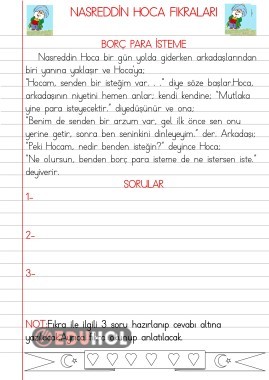 NASREDDİN HOCA FIKRALARI
BORÇ PARA İSTEME
Nasreddin Hoca bir gün yolda giderken arkadaşlarından
biri yanına yaklaşır ve Hoca'ya;
"Hocam, senden bir isteğim var. . ." diye söze başlar.Hoca,
arkadaşının niyetini hemen anlar; kendi kendine; "Mutlaka
yine para isteyecektir." diyedüşünür ve ona;
"Benim de senden bir arzum var, gel ilk önce sen onu
yerine getir, sonra ben seninkini dinleyeyim." der. Arkadaşı;
"Peki Hocam, nedir benden isteğin?" deyince Hoca;
"Ne olursun, benden borç para isteme de ne istersen iste."
deyiverir.
SORULAR
1-
2-
3-
NOT:Fıkra ile ilgili 3 soru hazırlanıp cevabı altına
yazılacak.Ayrıca fıkra okunup anlatılacak.
EDUHOL